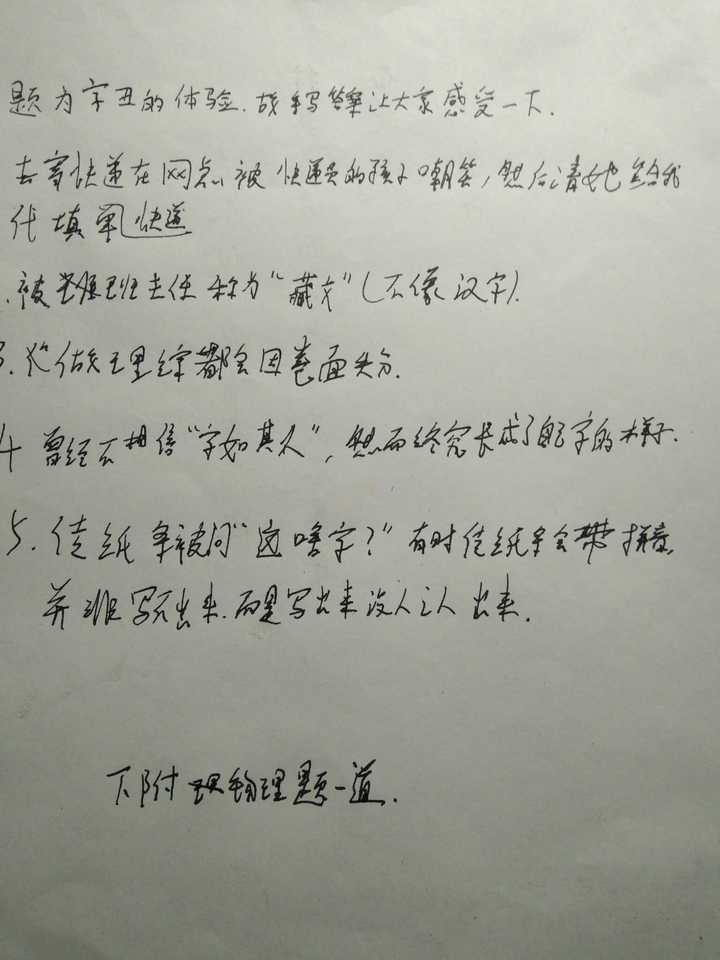 题为字丑的体验.故手写答案让大家感受一下.
去寄快递在网点被快递员的孩子嘲笑,然后请她给我
代填单快递
.被 班主任称为“藏文”(不像汉字).
3. 做理综都会因卷面失分.
4 曾经不相信“字如其人”,然而终究长成了自己字的样子.
5.传纸条被问“这啥字?”有时传纸条会带拼音
并非写不出来.而是写出来没人认出来.
下附 物理题一道.